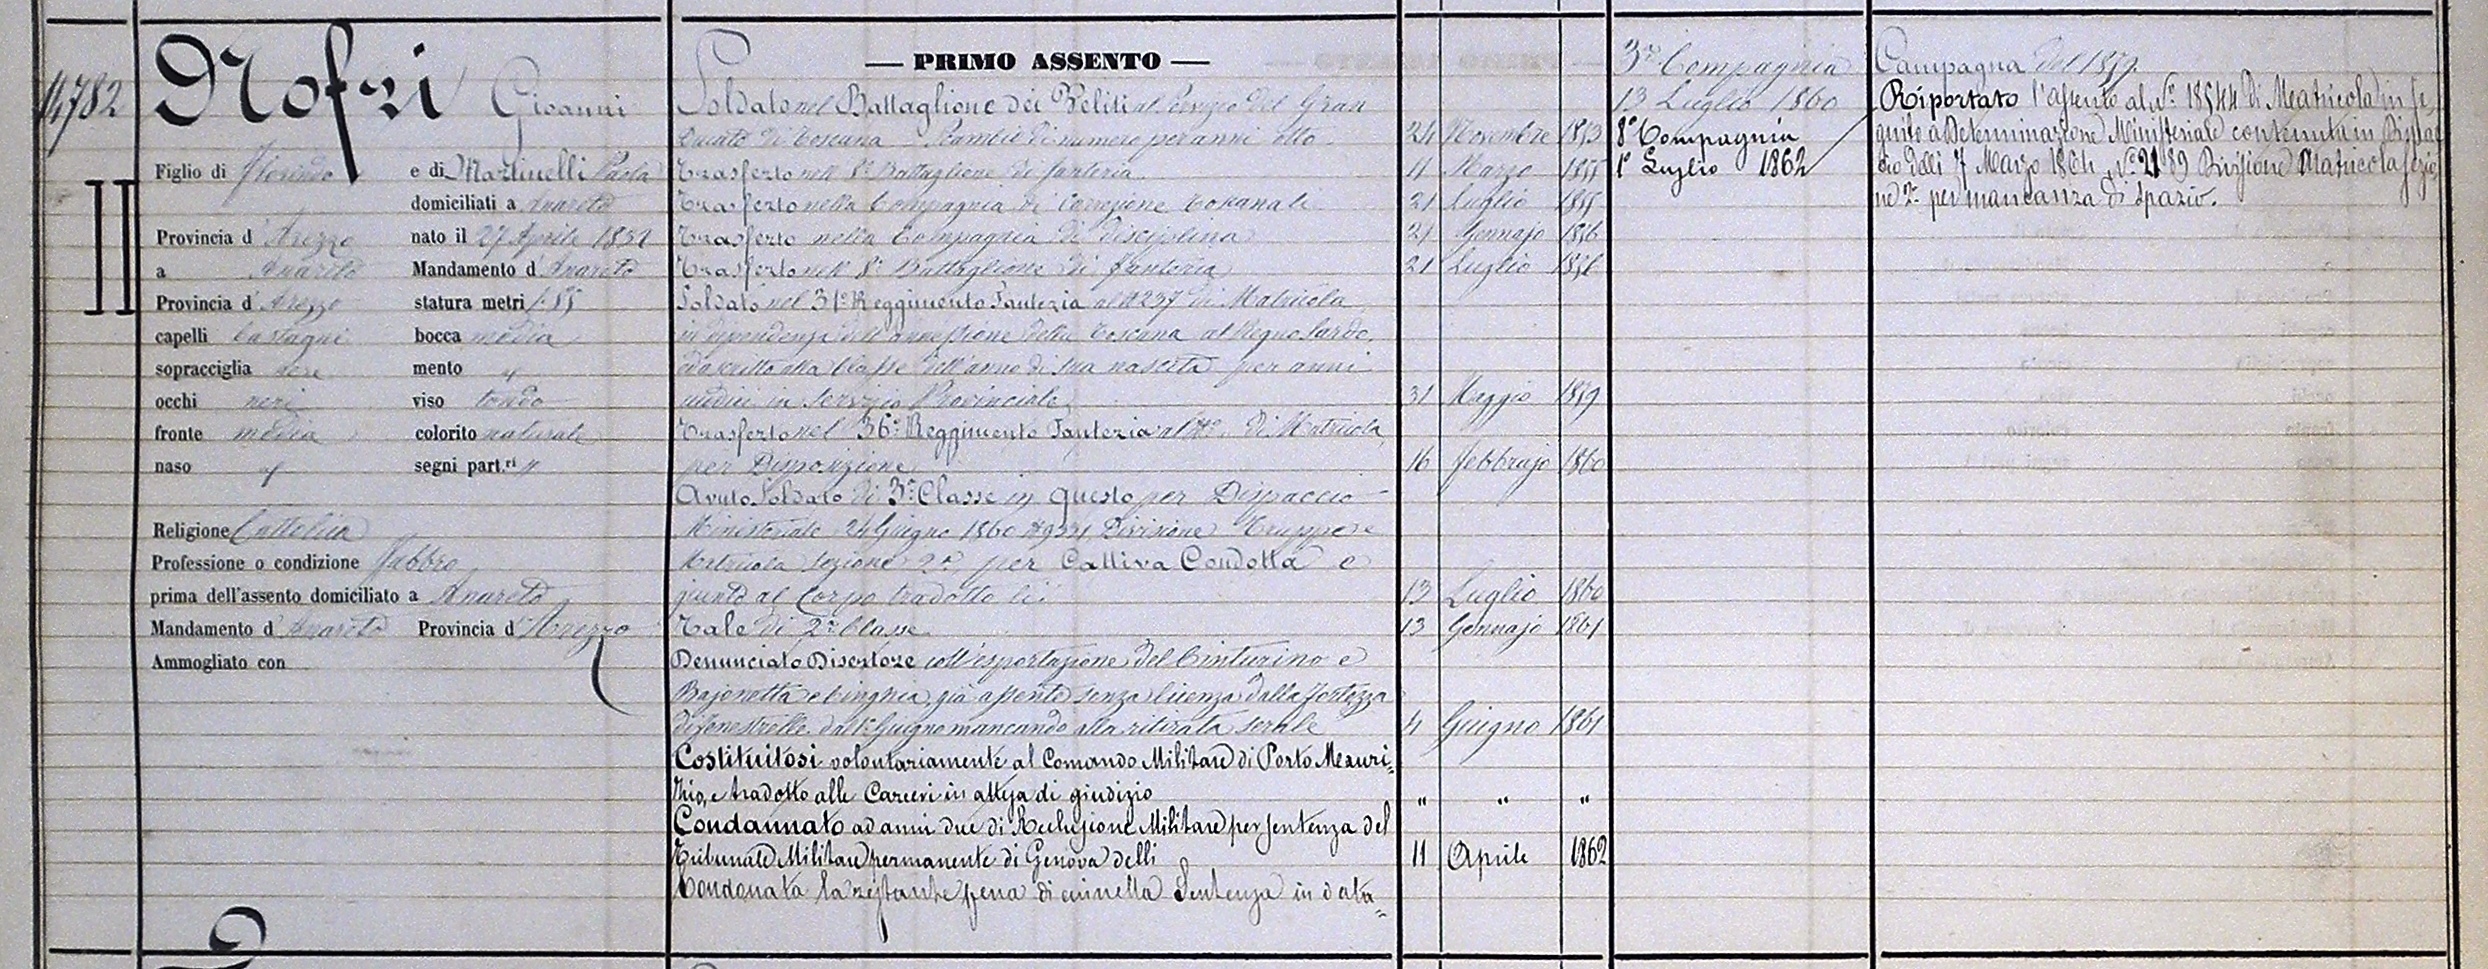 14782
II
Nofri Giovanni
Figlio di Florindo e di Martinelli Paola
domiciliati a Anareto
Provincia d'Arezzo nato il 27 Aprile 1831
a Anareto Mandamento d'Anareto
Provincia d'Arezzo statura metri 1.55
capelli Castagni bocca media
sopracciglia nere mento
occhi neri viso tondo
fronte media colorito naturale
naso segni part.ri "
Religione Cattolica
Professione o condizione Fabbro
prima dell'assento domiciliato a Anareto
Mandamento d'Anareto Provincia d'Arezzo
Ammogliato con
— PRIMO ASSENTO —
Soldato nel Battaglione dei Veliti al Servizio del Gran
Ducato di Toscana Scambio di numero per anni otto 24 Novembre 1853
Trasferto nell' 8° Battaglione di fanteria 11 Marzo 1855
Trasferto nella Compagnia di Correzione Toscana li 21 Luglio 1855
Trasferto nella Compagnia di disciplina 21 Gennajo 1856
Trasferto nell' 8° Battaglione di Fanteria 21 Luglio 1856
Soldato nel 31° Reggimento Fanteria al N 237 di Matricola
in dipendenza dell'annessione della Toscana al Regno Sardo,
ed ascritto alla Classe dell'anno di sua nascita per anni
undici in Servizio Provinciale 31 Maggio 1859
Trasferto nel 36° Reggimento Fanteria al N° di Matricola
per Disposizione 16 febbrajo 1860
Avuto Soldato di 3a Classe in questo per Dispaccio
Ministeriale 24 Giugno 1860 N 9331 Divisione Truppe e
Matricola Sezione 2a per Cattiva Condotta e
giunto al Corpo tradotto li 13 Luglio 1860
Tale di 2a Classe 13 Gennajo 1861
Denunciato Disertore coll'esportazione del Cinturino e
Bajonetta e Cinghia, già assente senza licenza dalla fortezza
di fenestrelle dal 1° Giugno mancando alla ritirata serale 4 Giugno 1861
Costituitosi volontariamente al Comando Militare di Porto Mauri-
zio, e tradotto alle Carceri in attesa di giudizio " " "
Condannato ad anni due di Reclusione Militare per sentenza del
Tribunale Militare permanente di Genova delli 11 Aprile 1862
Condonata la restante pena di cui nella Sentenza in data=
3a Compagnia
13 Luglio 1860
8a Compagnia
1° Luglio 1862
Campagna del 1859.
Riportato l'assento al N° 18544 di Matricola in se-
guito a Determinazione Ministeriale contenuta in Dispac-
cio delli 7 Marzo 1864 N° 2189 Divisione Matricola Sezio-
ne 2a per mancanza di spazio.